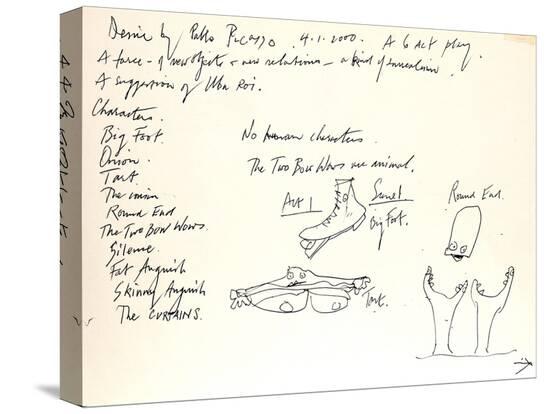 Desire by Pablo Picasso 4.1.2000. A 6 Act play.
A farce - of new objects + new relations - a kind of surrealism.
A suggestion of Ubu Roi.
Characters.
Big Foot.
Onion.
Tart.
The
Round End
The Two Bow Wows.
Silence.
Fat Anguish
Skinny Anguish
The CURTAINS.
No human characters
The Two Bow Wows are animal.
Act 1
Scene 1
Big Foot.
Round End.
Tart.